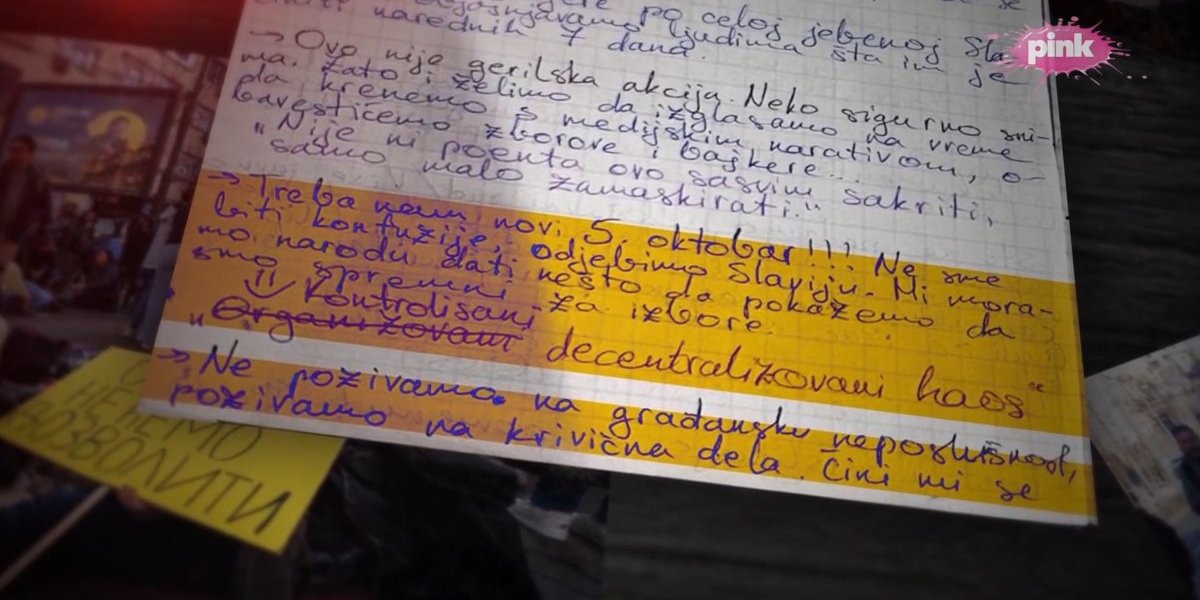 po celoj jebenoj Sla-
ljudima šta im je
narednih 7 dana.
pink
→ Ovo nije gerilska akcija. Neko sigurno sni-
ma. Zato i želimo da izglasamo na vreme
da krenemo s medijskim narativom, o-
bavestićemo zborove i bajkere...
„Nije ni poenta ovo sasvim sakriti,
samo malo zamaskirati.“
→ Treba nam novi 5. oktobar!!! Ne sme
biti konfuzije, odjebimo Slaviju. Mi mora-
mo narodu dati nešto da pokažemo da
smo spremni za izbore.
kontrolisani
„Organizovani decentralizovani haos“
→ Ne pozivamo na građansku neposlušnost,
pozivamo na krivična dela. Čini mi se
НЕЋЕМО
ОЗВОЛИТИ